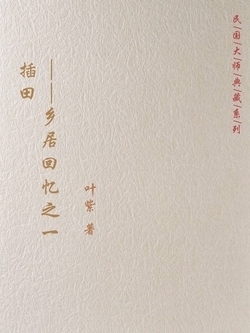 民/国/大/师/典/藏/系/列
插田
——乡居回忆之一
叶紫 著